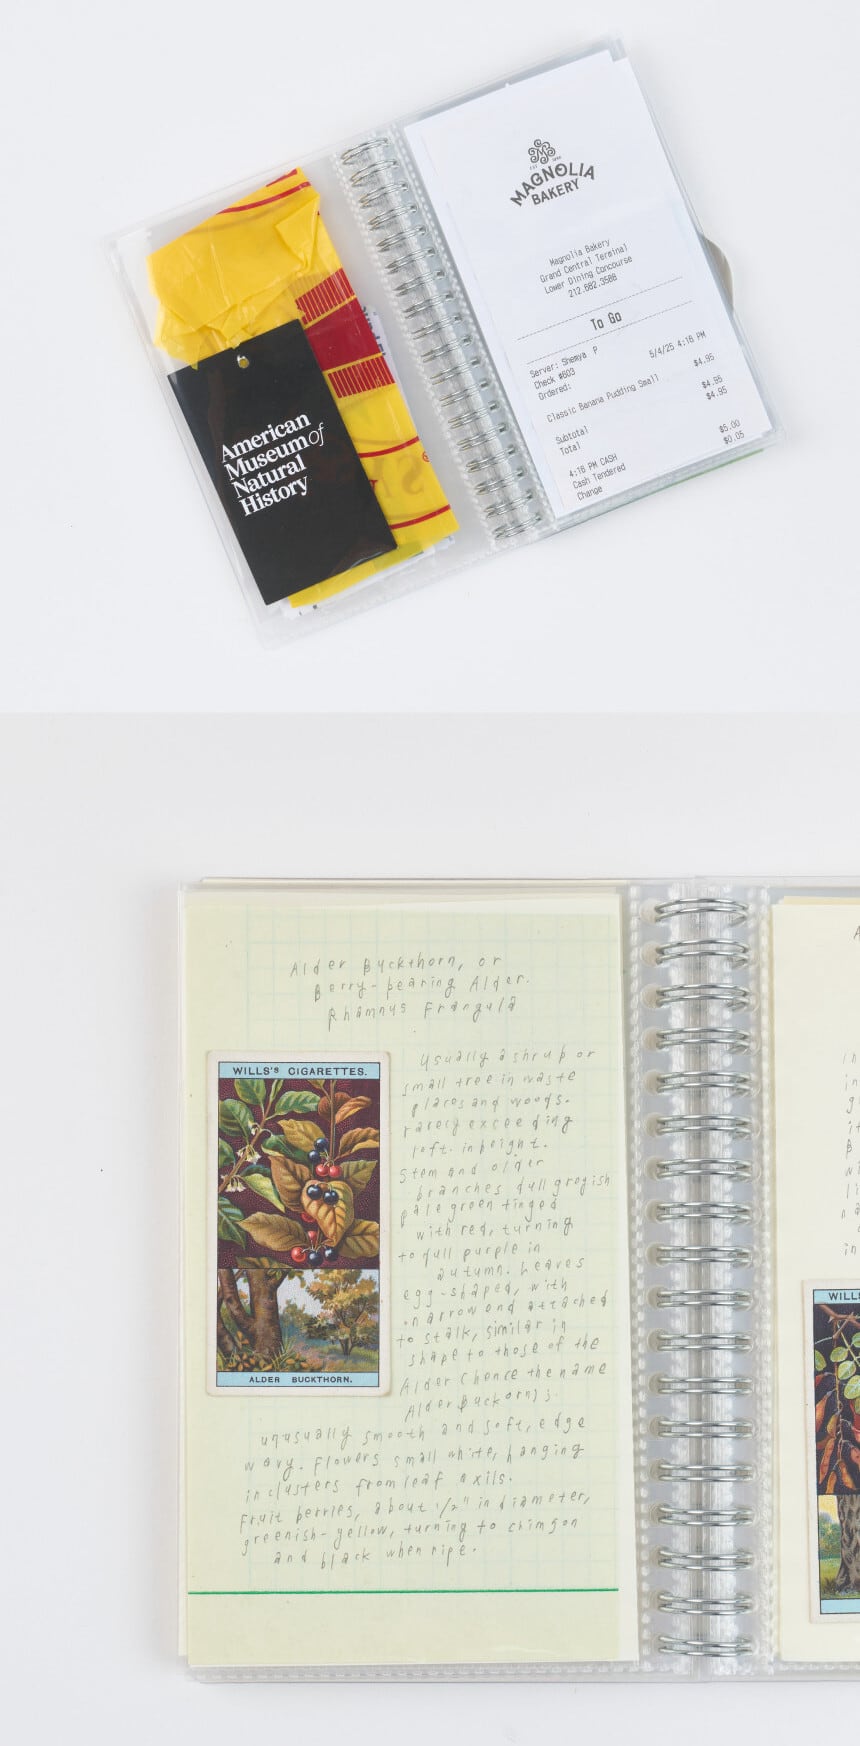 American
Museum of
Natural
History
EST. 1996
MAGNOLIA
BAKERY
Magnolia Bakery
Grand Central Terminal
Lower Dining Concourse
212.682.3588
To Go
Server: Shemya P 5/4/25 4:16 PM
Check #603
Ordered:
Classic Banana Pudding Small $4.95
Subtotal $4.95
Total $4.95
4:16 PM CASH
Cash Tendered $5.00
Change $0.05
Alder Buckthorn, or
Berry-bearing Alder.
Rhamnus Frangula
WILLS'S CIGARETTES.
ALDER BUCKTHORN.
Usually a shrub or
small tree in waste
places and woods.
rarely exceeding
10ft. in height.
Stem and older
branches dull greyish
pale green tinged
with red, turning
to dull purple in
autumn. Leaves
egg-shaped, with
narrow end attached
to stalk, similar in
shape to those of the
Alder (hence the name
Alder Buckorn);
unusually smooth and soft, edge
wavy. Flowers small white, hanging
in clusters from leaf axils.
Fruit berries, about 1/2" in diameter,
greenish-yellow, turning to crimson
and black when ripe.
WILL